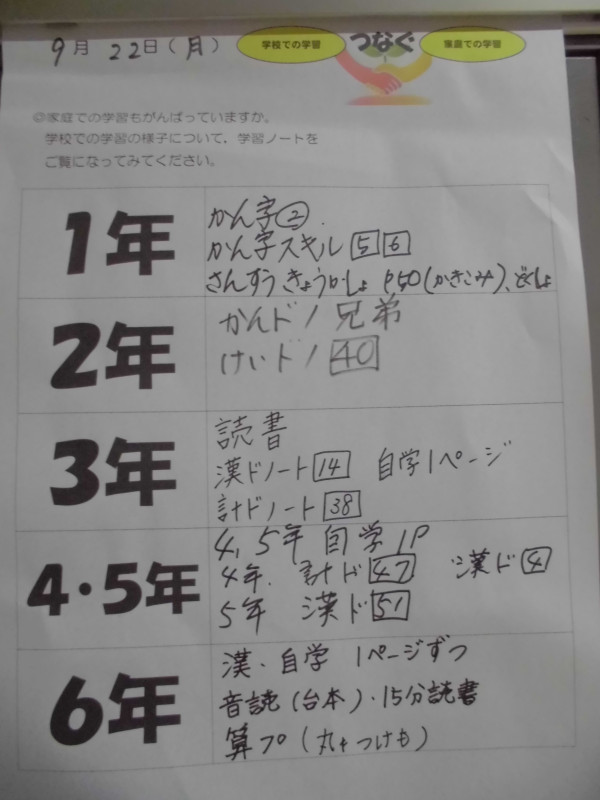 9月 22日(月)
学校での学習 つなぐ 家庭での学習
◎家庭での学習もがんばっていますか。
学校での学習の様子について,学習ノートを
ご覧になってみてください。
1年
かん字②.
かん字スキル 5 6
さんすう きょうかしょ P50(かきこみ)、どくしょ
2年
かんドノ 兄弟
けいドノ 40
3年
読書
漢ドノート 14 自学1ページ
計ドノート 38
4・5年
4,5年 自学1P
4年. 計ド 47 漢ド 4
5年 漢ド 51
6年
漢・自学 1ページずつ
音読(台本)・15分読書
算プ(丸つけも)